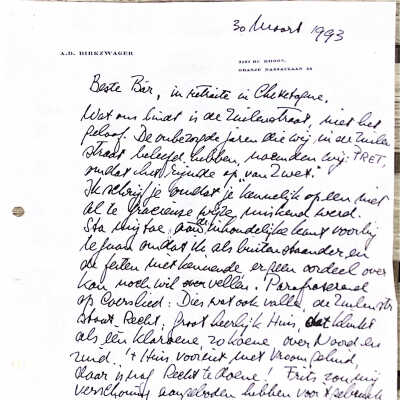 30 Maart 1993
A.D. BIRKZWAGER
3161 RC RHOON,
ORANJE NASSAULAAN 25
Beste Bár, in retraite in Chevetogne,
Wat ons bindt is de Zuilenstraat, niet het
geloof. De onbezorgde jaren die wij in de Zuilen
straat beleefd hebben, noemden wij: FRET,
omdat het rijmde op "van Zwet".
Ik schrijf je omdat je kennelijk op een niet
al te gracieuze wijze miskend werd.
Sta mij toe aan de inhoudelijke kant voorbij
te gaan omdat ik als buitenstaander en
de feiten niet kennende er geen oordeel over
kan noch wil vellen. Parafraserend
op Corpslied: Dies wat ook valle, de Zuilenstr
staat Recht, Groot heerlijk Huis dat klinkt
als één klaroene, zo koene over Noord en
Zuid. 't Huis vooruit met vroom geluid,
daar is nog Recht te doene! Frits zou mij
verschoning aangeboden hebben voor 't gebruik